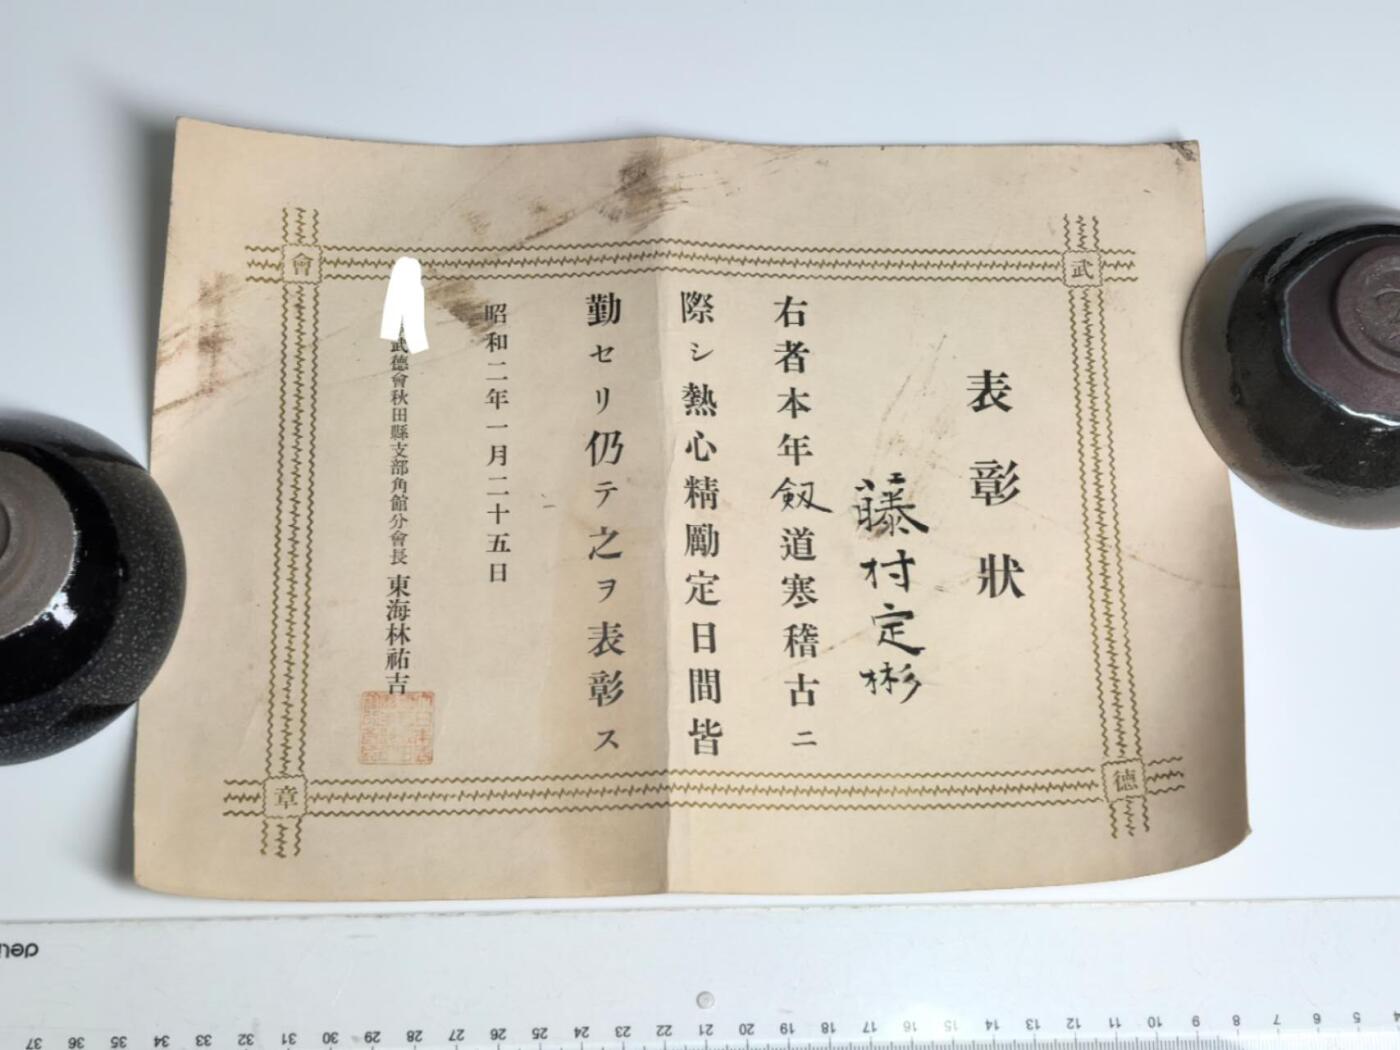 表彰狀
藤村定彬
右者本年劔道寒稽古ニ
際シ熱心精勵定日間皆
勤セリ仍テ之ヲ表彰ス
昭和二年一月二十五日
武德會秋田縣支部角館分會長 東海林祐吉
武
德
會
章
deli
37 36 35 34 33 32 31 30 29 28 27 26 25 24 23 22 21 20 19 18 17 16 15 14 13 12 11 10 9 8 7 6 5 4